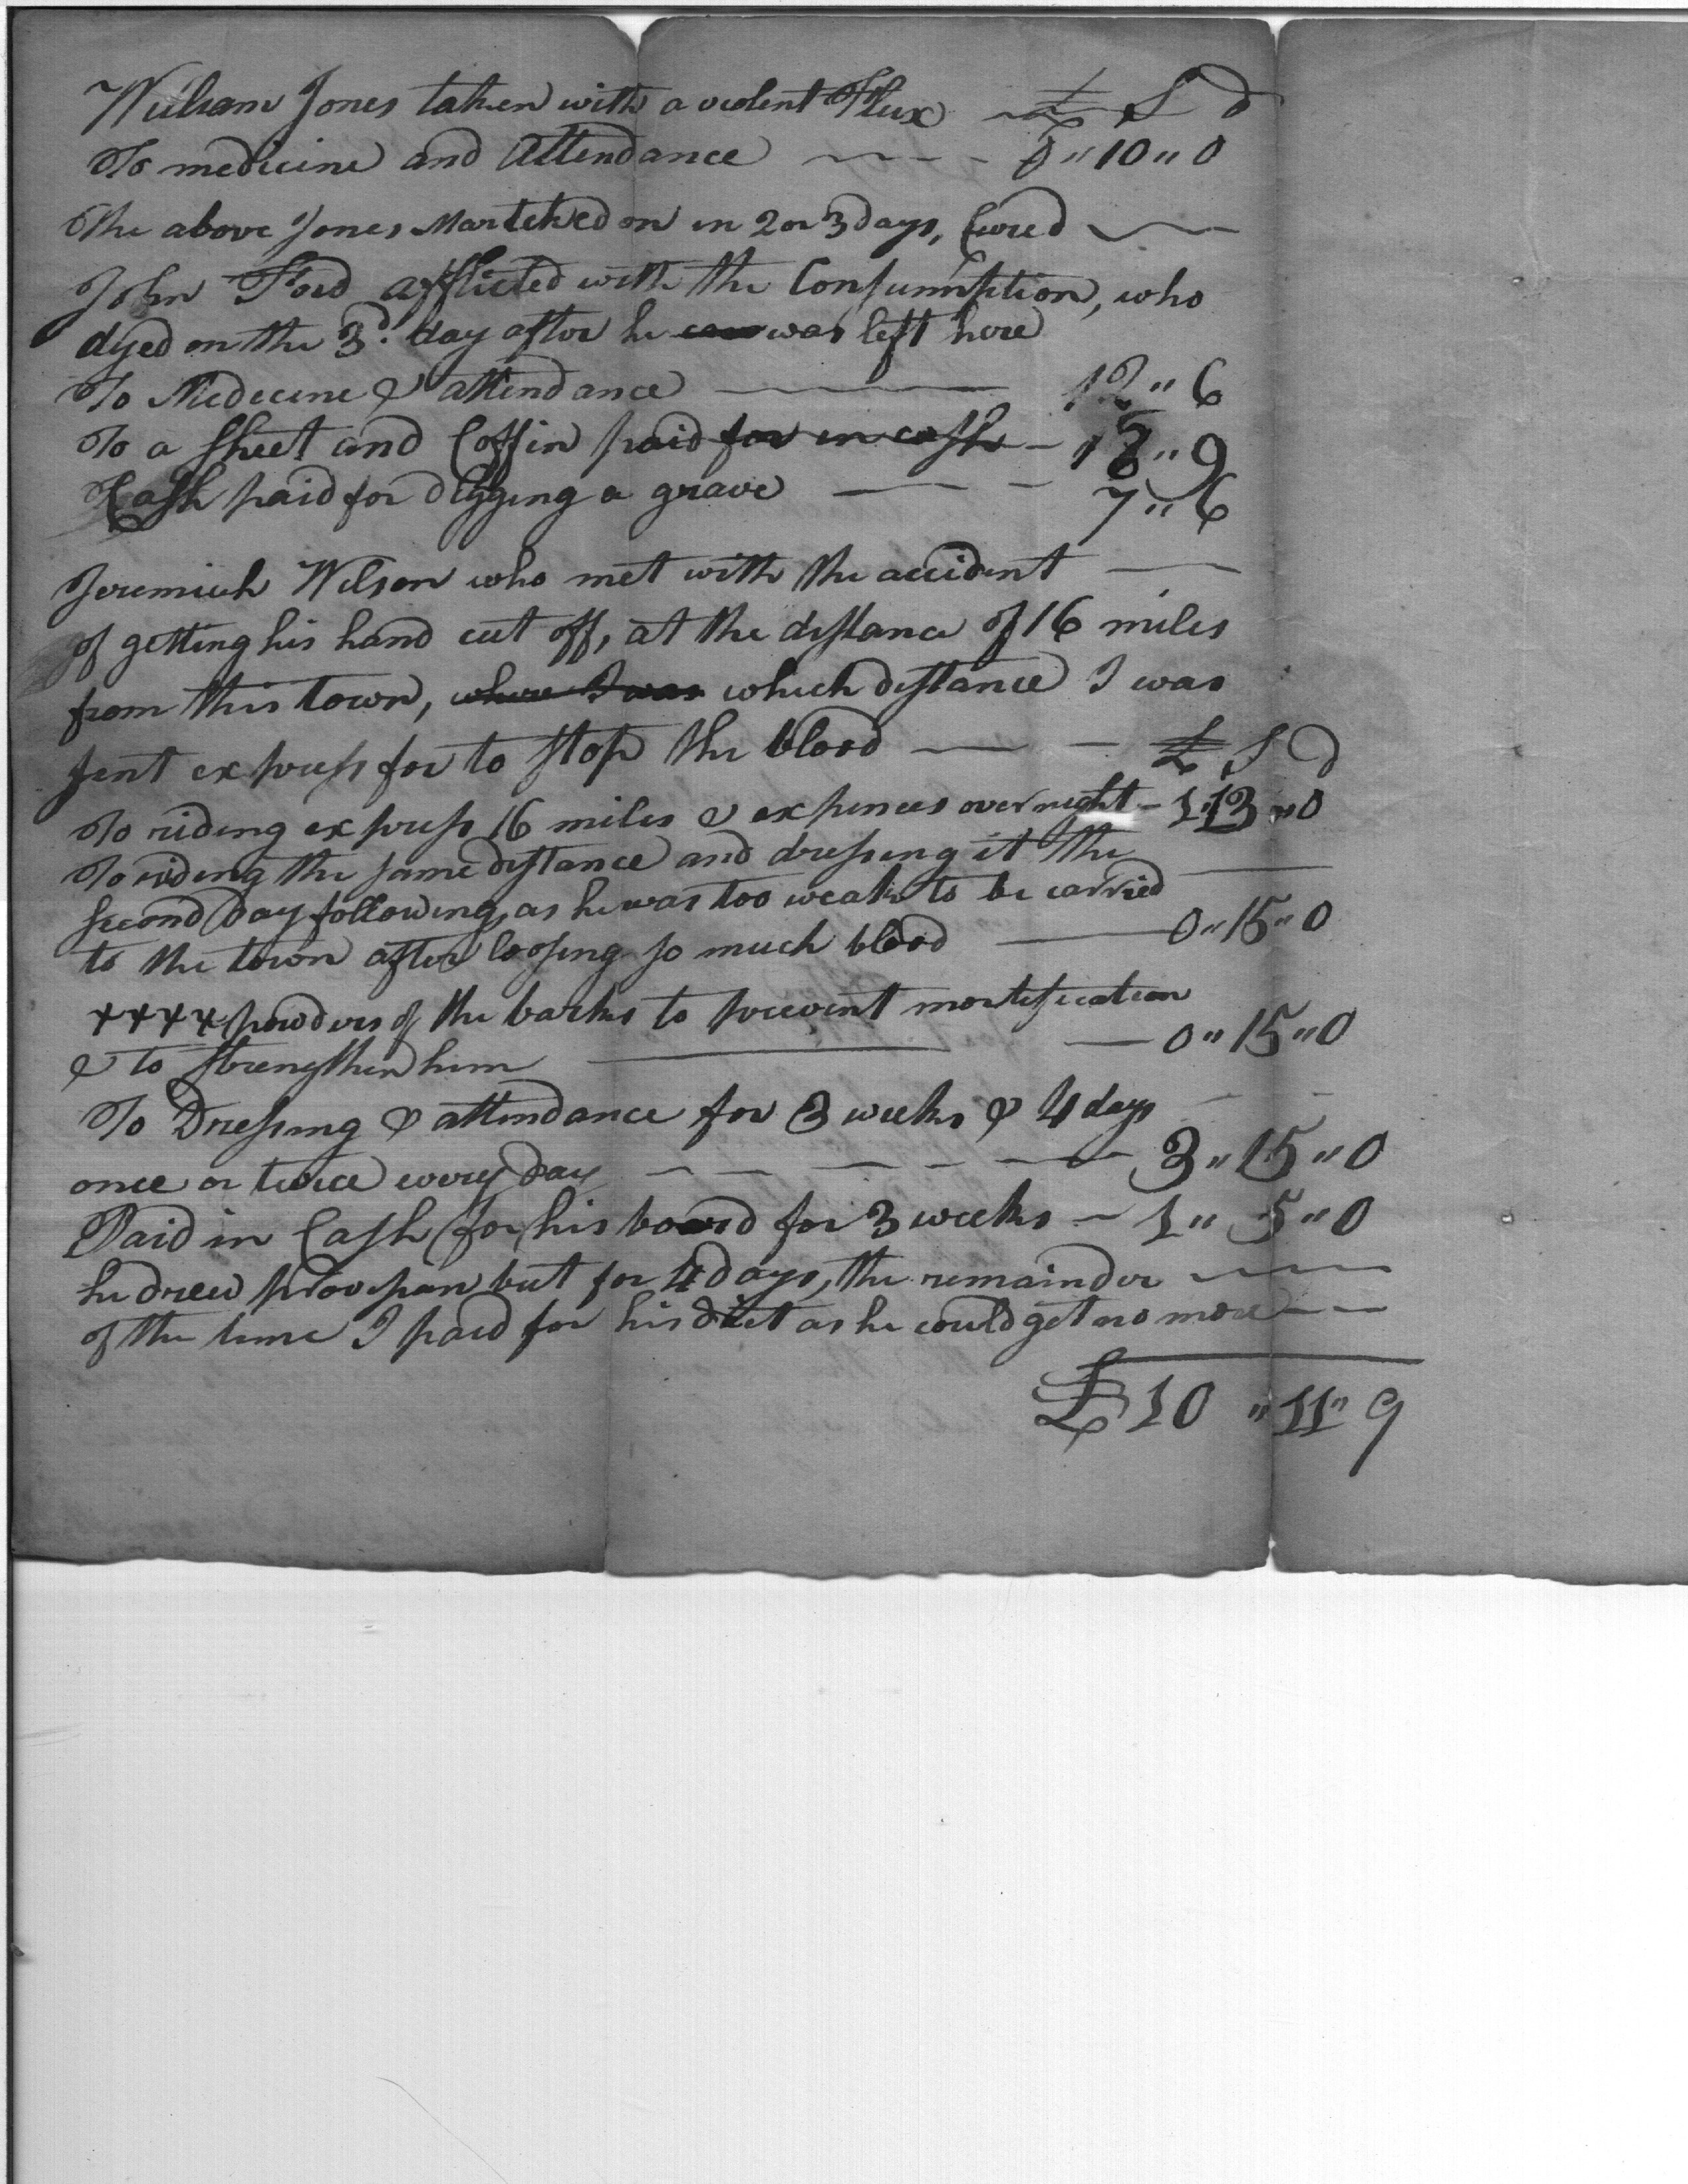 William Jones taken with a violent Flux £ S d
To medicine and Attendance 0" 10" 0
The above Jones Martched on in 2 or 3 days, Cured
John Ford afflicted with the Consumption, who
dyed on the 3d. day after he was left here
To Medecine & attendance 12" 6
To a Sheet and Coffin paid for in cash 18" 9
Cash paid for digging a grave 7" 6
Jeremiah Wilson who met with the accident
of getting his hand cut off, at the distance of 16 miles
from this town, where I was which distance I was
sent express for to stop the blood £ S d
To riding express 16 miles & expences over night 1"13"0
To riding the same distance and dressing it the
second day following, as he was too weak to be carried
to the town after loosing so much blood 0"15"0
++++ powders of the barks to prevent mortification
& to strengthen him 0"15"0
To Dressing & attendance for 3 weeks & 4 days
once or twice every day 3"15"0
Paid in Cash for his board for 3 weeks 1" 5"0
he drew provision but for 4 days, the remainder
of the time I paid for his diet as he could get no more
£10 "11" 9